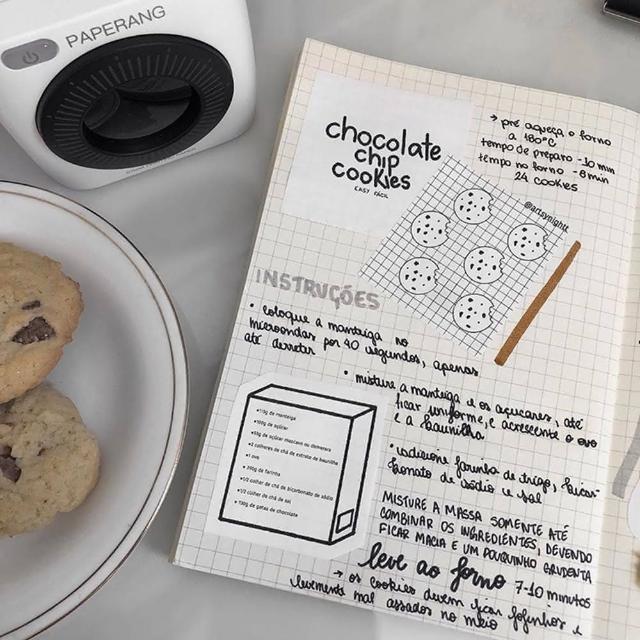 PAPERANG
chocolate
chip
cookies
EASY FÁCIL
→ pré aqueça o forno
a 180°C
tempo de preparo -10 min
tempo no forno -8 min
24 cookies
@artsynightt
INSTRUÇÕES
• coloque a manteiga no
microondas por 40 segundos, apenas
até derreter
• misture a manteiga e os açucares, até
ficar uniforme, e acrescente o ovo
e a baunilha
•110g de manteiga
•100g de açúcar
•2 colheres de chá de extrato de baunilha
•1 ovo
•390g de farinha
•1/2 colher de chá de bicarbonato de sódio
•1/2 colher de chá de sal
•150g de gotas de chocolate
• adicione farinha de trigo, bicar-
bonato de sódio e sal
MISTURE A MASSA SOMENTE ATÉ
COMBINAR OS INGREDIENTES, DEVENDO
FICAR MACIA E UM POUQUINHO GRUDENTA
leve ao forno 7-10 minutos
→ os cookies devem ficar fofinhos e
levemente mal assados no meio